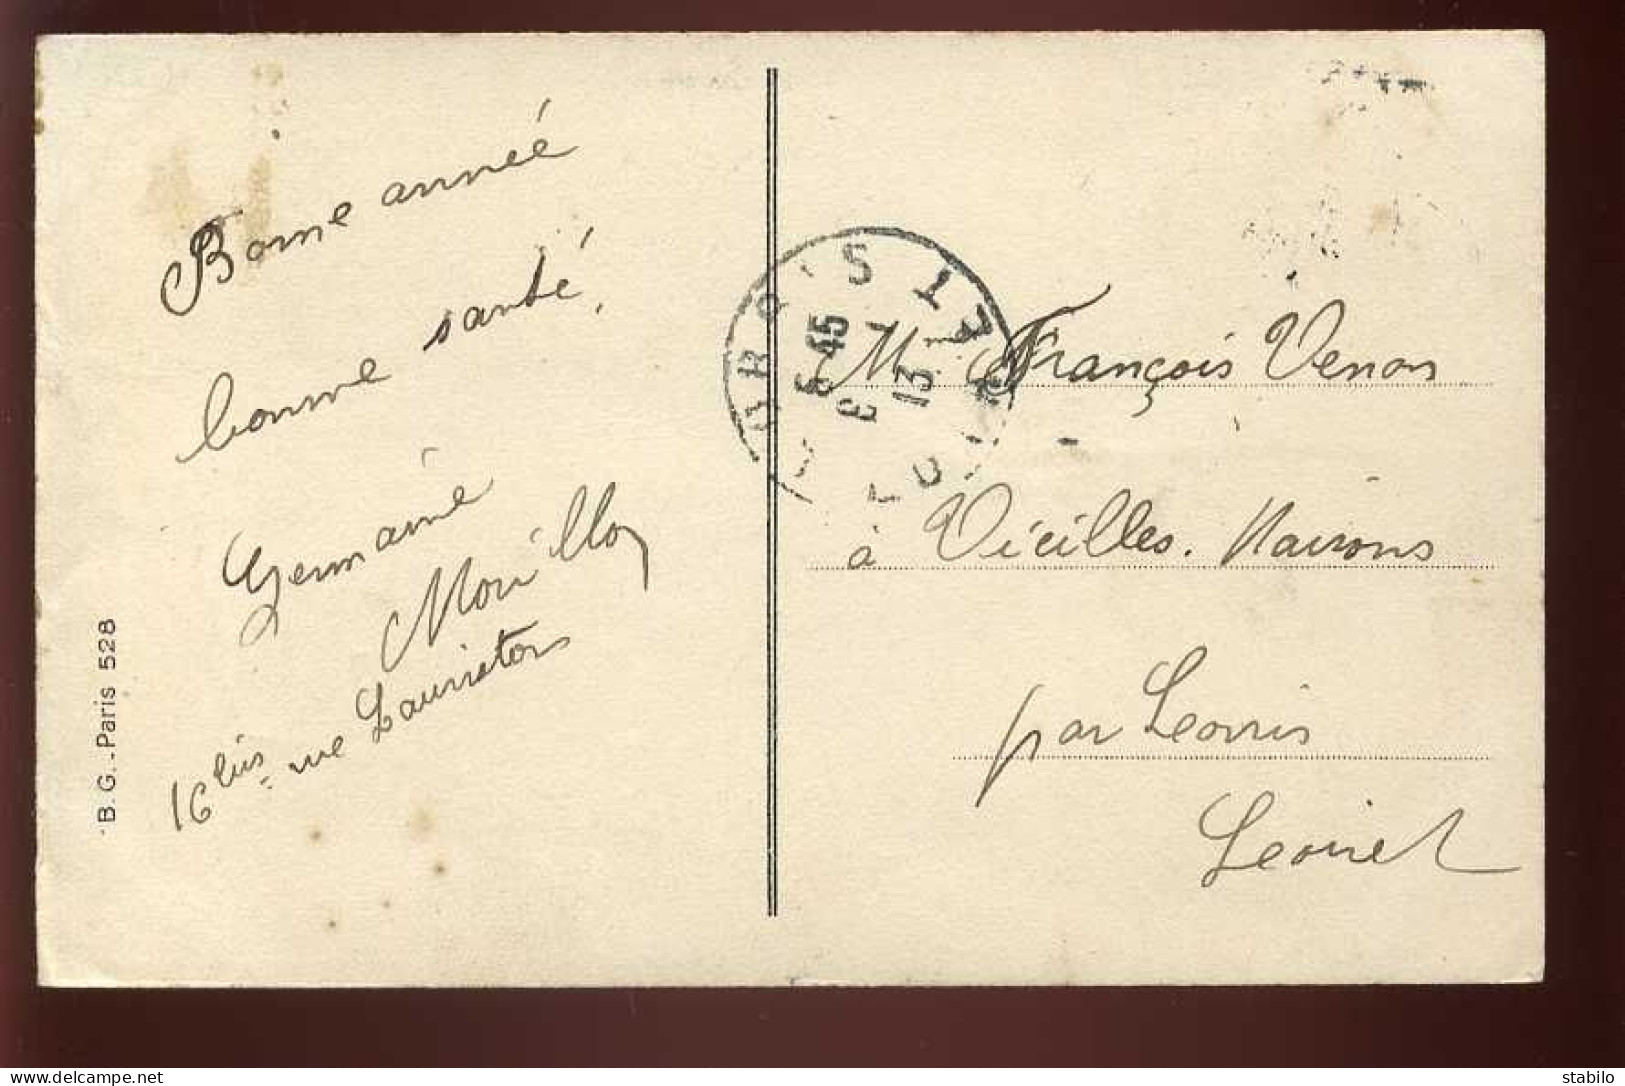 Bonne année
bonne santé,
Germaine
Morillon
16 bis rue Lauriston
B. G. _ Paris 528
6 45
13
M François Venon
à Vieilles. Maisons
par Lorris
Loiret
stabilo
www.delcampe.net